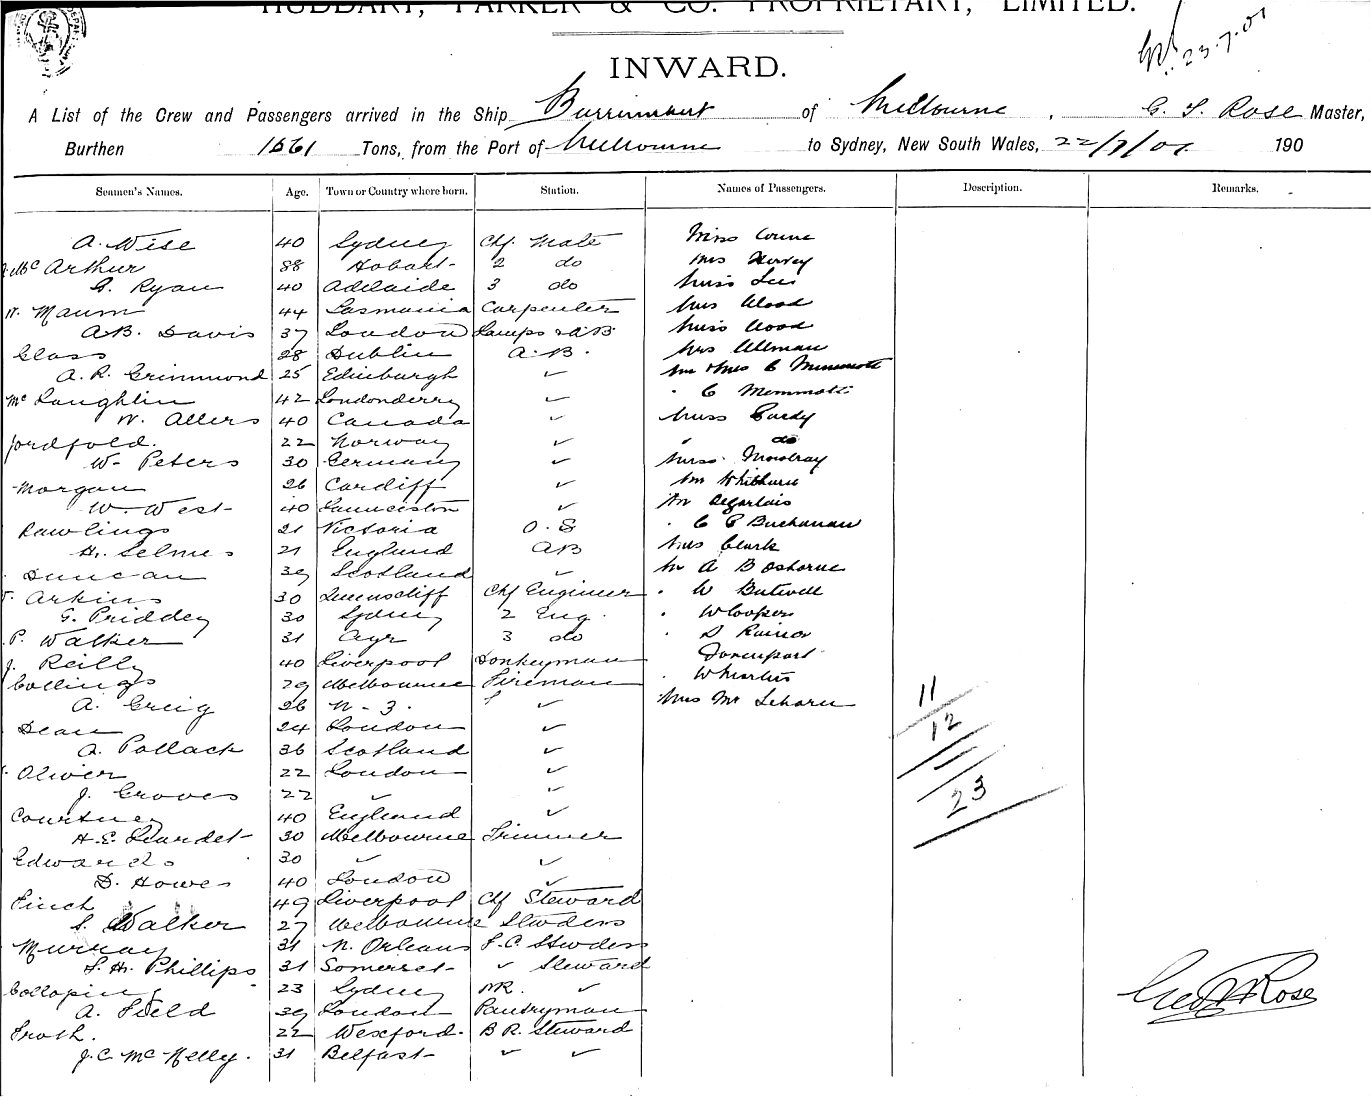 HUDDART, PARKER & CO. PROPRIETARY, LIMITED.
23.7.01
INWARD.
A List of the Crew and Passengers arrived in the Ship Burrumbeet of Melbourne, G. T. Rose Master,
Burthen Tons, from the Port of Melbourne to Sydney, New South Wales, 22/7/01 190
Seamen's Names. Age. Town or Country where born. Station. Names of Passengers. Description. Remarks.
A. Wise 40 Sydney Chf. Mate Miss
McArthur 38 Hobart 2 do Mrs Hervey
G. Ryan 40 Adelaide 3 do Miss Lee
W. Maum 44 Tasmania Carpenter Mrs Wood
A.B. Davis 37 London Lamps & AB Miss Wood
Glass 28 Dublin A.B. Mrs Ullman
A. R. Grimmond 25 Edinburgh ✓ Mr & Mrs C
McLaughlin 42 Londonderry ✓ " C
W. Allers 40 Canada ✓ Miss
22 Norway ✓ " do
W. Peters 30 Germany ✓ Miss Mowbray
Morgan 26 Cardiff ✓ Mr
W. West 40 Launceston ✓ Mr
Rawlings 21 Victoria O.S " C P Buchanan
H. Selmes 21 England AB Mrs Clark
Duncan 39 Scotland ✓ Mr A B Osborne
Arkins 30 Queenscliff Chf Engineer " W
G. Priddey 30 Sydney 2 Eng. " W Cooper
P. Walker 31 Ayr 3 do "
J. Reilly 40 Liverpool Donkeyman Davenport
Collings 29 Melbourne Fireman "
A. Greig 26 N-Z. ✓ Mrs
Dean 24 London ✓
A. Pollack 36 Scotland ✓
Oliver 22 London ✓
J. Groves 22 ✓ ✓
Courtney 40 England ✓
H.E. Liardet 30 Melbourne Trimmer
Edwards 30 ✓ ✓
D. Howes 40 London ✓
Finch 49 Liverpool Chf Steward
S. Walker 27 Melbourne Stwdess
Murray 31 N. Orleans F.C. Stwdess
F. H. Phillips 31 Somerset ✓ Steward
23 Sydney ✓
A. Field 39 London Pantryman
Froth. 22 Wexford. B R. Steward
J.C. McKelly. 31 Belfast ✓ ✓
11
12
23
Geo T Rose